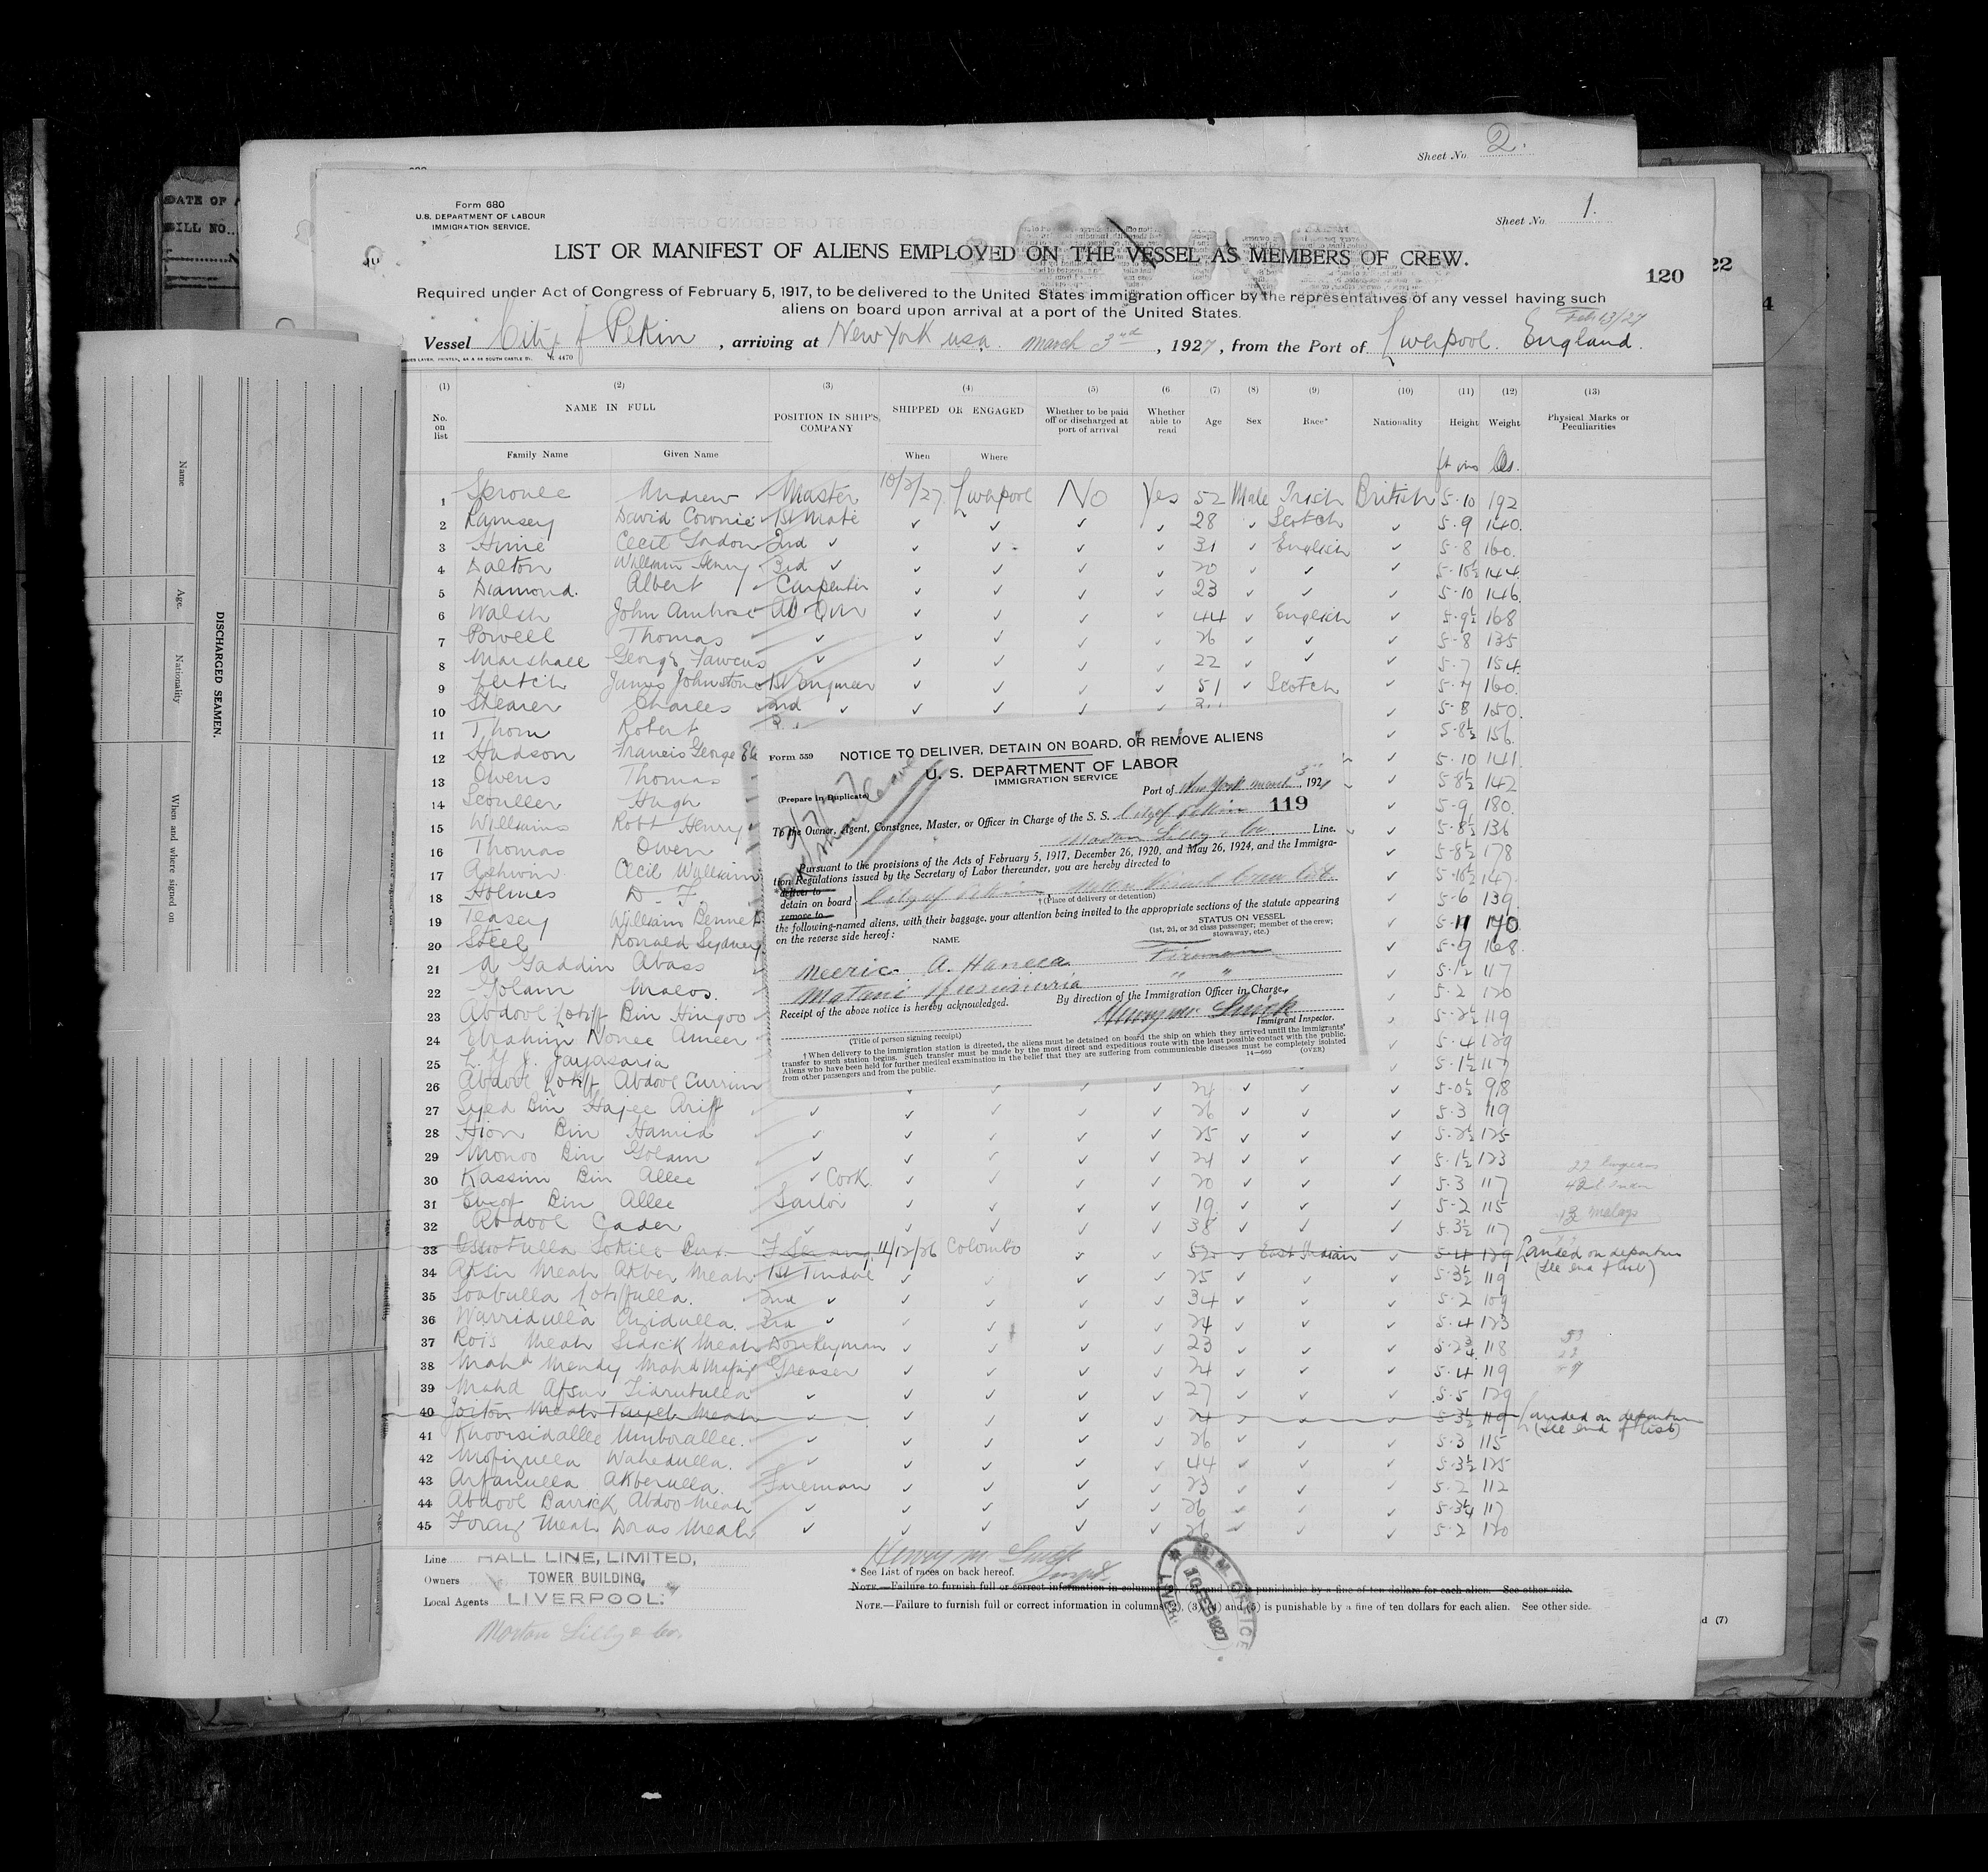 Sheet No 2.
Form 680
U.S. DEPARTMENT OF LABOUR
IMMIGRATION SERVICE.
Sheet No. 1.
LIST OR MANIFEST OF ALIENS EMPLOYED ON THE VESSEL AS MEMBERS OF CREW.
120
22
4
DATE OF
BILL NO.
Required under Act of Congress of February 5, 1917, to be delivered to the United States immigration officer by the representatives of any vessel having such
aliens on board upon arrival at a port of the United States.
Feb 13/27
Vessel City of Pekin, arriving at New York usa. March 3rd, 1927, from the Port of Liverpool. England.
(1) (2) (3) (4) (5) (6 (7) (8) (9) (10) (11) (12) (13)
No. on list
NAME IN FULL
Family Name Given Name
POSITION IN SHIP'S COMPANY
SHIPPED OR ENGAGED
When Where
Whether to be paid off or discharged at port of arrival
Whether able to read
Age Sex Race* Nationality Height Weight
Physical Marks or Peculiarities
ft ins lbs.
1 Sproule Andrew Master 10/2/27 Liverpool No Yes 52 Male Irish British 5-10 192
2 Ramsey David Cownie 1st Mate ✓ ✓ ✓ ✓ 28 ✓ Scotch ✓ 5-9 140
3 Hime Cecil Gordon 2nd ✓ ✓ ✓ ✓ ✓ 31 ✓ English ✓ 5-8 160
4 Dalton William Henry 3rd ✓ ✓ ✓ ✓ ✓ 20 ✓ ✓ ✓ 5-10½ 144
5 Diamond. Albert Carpenter ✓ ✓ ✓ ✓ 23 ✓ ✓ ✓ 5-10 146
6 Walsh John Ambrose AB QM ✓ ✓ ✓ ✓ 44 ✓ English ✓ 5-9½ 168
7 Powell Thomas ✓ ✓ ✓ ✓ ✓ 26 ✓ ✓ ✓ 5-8 135
8 Marshall George Fawcus ✓ ✓ ✓ ✓ ✓ 22 ✓ ✓ ✓ 5-7 154
9 Leitch James Johnstone 1st Engineer ✓ ✓ ✓ ✓ 51 ✓ Scotch ✓ 5-7 160
10 Shearer Charles 2nd ✓ ✓ ✓ ✓ ✓ ✓ 5-8 150
11 Thom Robert ✓ 5-8½ 156
12 Hudson Francis George ✓ 5-10 141
13 Owens Thomas ✓ 5-8½ 142
14 Scouller Hugh ✓ 5-9 180
15 Williams Robt Henry ✓ 5-8½ 136
16 Thomas Owen ✓ 5-8½ 178
17 Ashwin Cecil William ✓ 5-10½ 147
18 Holmes D. F. ✓ 5-6 139
19 Teasey William Bennet ✓ 5-11 140
20 Steel Ronald Sydney ✓ 5-9 168
21 A Gaddin Abass ✓ 5-1½ 117
22 Golam ✓ 5-2 120
23 Abdool Lotiff Bin ✓ 5-2½ 119
24 Ebrahim Nonee Ameer ✓ 5-4 129
25 L. Y. J. Jayasaria ✓ 5-1½ 117
26 Abdool Lotiff Abdool Currim ✓ ✓ ✓ 24 ✓ ✓ ✓ 5-0½ 98
27 Syed Bin Hajee Ariff ✓ ✓ ✓ ✓ ✓ 26 ✓ ✓ ✓ 5-3 119
28 Bin Hamid ✓ ✓ ✓ ✓ ✓ 25 ✓ ✓ ✓ 5-2½ 125
29 Monoo Bin Golam ✓ ✓ ✓ ✓ ✓ 24 ✓ ✓ ✓ 5-1½ 123
30 Kassim Bin Allee ✓ Cook ✓ ✓ ✓ ✓ 20 ✓ ✓ ✓ 5-3 117
31 Eusof Bin Allee Sailor ✓ ✓ ✓ ✓ 19 ✓ ✓ ✓ 5-2 115
32 Abdool Cader ✓ ✓ ✓ ✓ ✓ 38 ✓ ✓ ✓ 5-3½ 117
33 11/12/26 Colombo ✓ ✓ 52 ✓ East Indian ✓ 5-4 129 Landed on departure
(See end of list)
34 Aksir Meah Akber Meah 1st Tindal ✓ ✓ ✓ ✓ 25 ✓ ✓ ✓ 5-3½ 119
35 Soabulla Lotiffulla. 2nd ✓ ✓ ✓ ✓ ✓ 34 ✓ ✓ ✓ 5-2 109
36 Warridulla Azidulla. 3rd ✓ ✓ ✓ ✓ ✓ 24 ✓ ✓ ✓ 5-4 123
37 Rois Meah Sedick Meah Donkeyman ✓ ✓ ✓ ✓ 23 ✓ ✓ ✓ 5-2¾ 118
38 Mahd Mendy Mahd Greaser ✓ ✓ ✓ ✓ 24 ✓ ✓ ✓ 5-4 119
39 Mahd Afsur ✓ ✓ ✓ ✓ ✓ 27 ✓ ✓ ✓ 5-5 129
40 Meah Meah ✓ ✓ ✓ ✓ ✓ 24 ✓ ✓ ✓ 5-3½ 119 Landed on departure
(See end of list)
41 Khoorsidallee Umborallee. ✓ ✓ ✓ ✓ ✓ 26 ✓ ✓ ✓ 5-3 115
42 Mofizulla Wahedulla. ✓ ✓ ✓ ✓ ✓ 44 ✓ ✓ ✓ 5-3½ 125
43 Arfanulla Akberulla. Fireman ✓ ✓ ✓ ✓ 23 ✓ ✓ ✓ 5-2 112
44 Abdool Barrick Abdoo Meah ✓ ✓ ✓ ✓ ✓ 26 ✓ ✓ ✓ 5-3¼ 117
45 Meah Doras Meah ✓ ✓ ✓ ✓ ✓ 26 ✓ ✓ ✓ 5-2 120
Form 559
NOTICE TO DELIVER, DETAIN ON BOARD, OR REMOVE ALIENS
U. S. DEPARTMENT OF LABOR
IMMIGRATION SERVICE
(Prepare in Duplicate)
Port of New York March 3", 1927
119
To the Owner, Agent, Consignee, Master, or Officer in Charge of the S. S. City of Pekin
Norton Lilly & Co Line.
Pursuant to the provisions of the Acts of February 5, 1917, December 26, 1920, and May 26, 1924, and the Immigra-
tion Regulations issued by the Secretary of Labor thereunder, you are hereby directed to
deliver to
detain on board
remove to
City of Pekin
† (Place of delivery or detention)
the following-named aliens, with their baggage, your attention being invited to the appropriate sections of the statute appearing
on the reverse side hereof:
NAME
STATUS ON VESSEL
(1st, 2d, or 3d class passenger; member of the crew;
stowaway, etc.)
A. Fireman
" "
Receipt of the above notice is hereby acknowledged.
By direction of the Immigration Officer in Charge,
Immigrant Inspector.
(Title of person signing receipt)
† When delivery to the immigration station is directed, the aliens must be detained on board the ship on which they arrived until the immigrants'
transfer to such station begins. Such transfer must be made by the most direct and expeditious route with the least possible contact with the public.
Aliens who have been held for further medical examination in the belief that they are suffering from communicable diseases must be completely isolated
from other passengers and from the public.
14—660 (OVER)
DISCHARGED SEAMEN.
Name
Age.
Nationality
When and where signed on
Line HALL LINE, LIMITED,
Owners TOWER BUILDING,
Local Agents LIVERPOOL.
Norton Lilly & Co.
* See List of races on back hereof.
NOTE.—Failure to furnish full or correct information in columns (3) and is punishable by a fine of ten dollars for each alien. See other side.
NOTE.—Failure to furnish full or correct information in columns (2), (3), (4) and (5) is punishable by a fine of ten dollars for each alien. See other side.
10 FEB 1927
d (7)